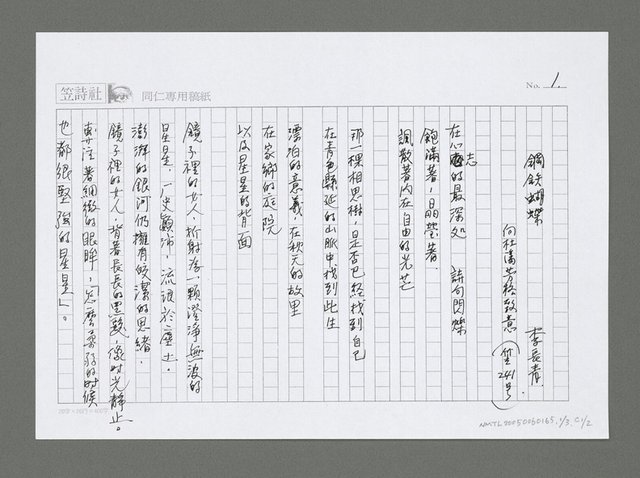 No. 1.
笠詩社 同仁專用稿紙
鋼鉄蝴蝶
李長青
向杜潘芳格致意
(笠241号)
在心志的最深处 詩句閃爍
飽滿著,晶瑩著
飄散著內在自由的光芒
那一棵相思樹,是否已經找到自己
在青色縣延的山脈中找到此生
漂泊的意義,在秋天的故里
在家鄉的庭院
以及星星的背面
鏡子裡的女人,折射為一顆澄淨無波的
星星,历史顛沛,流浪於塵土。
澎湃的銀河仍擁有皎潔的思緒,
鏡子裡的女人,背著長長的黑髮,像時光靜止。
專注著細微的眼眸,「怎麼柔弱的时候
也都很堅強的星星」。
20字×20行=400字
NMTL20050060165, 1/3, C1/2